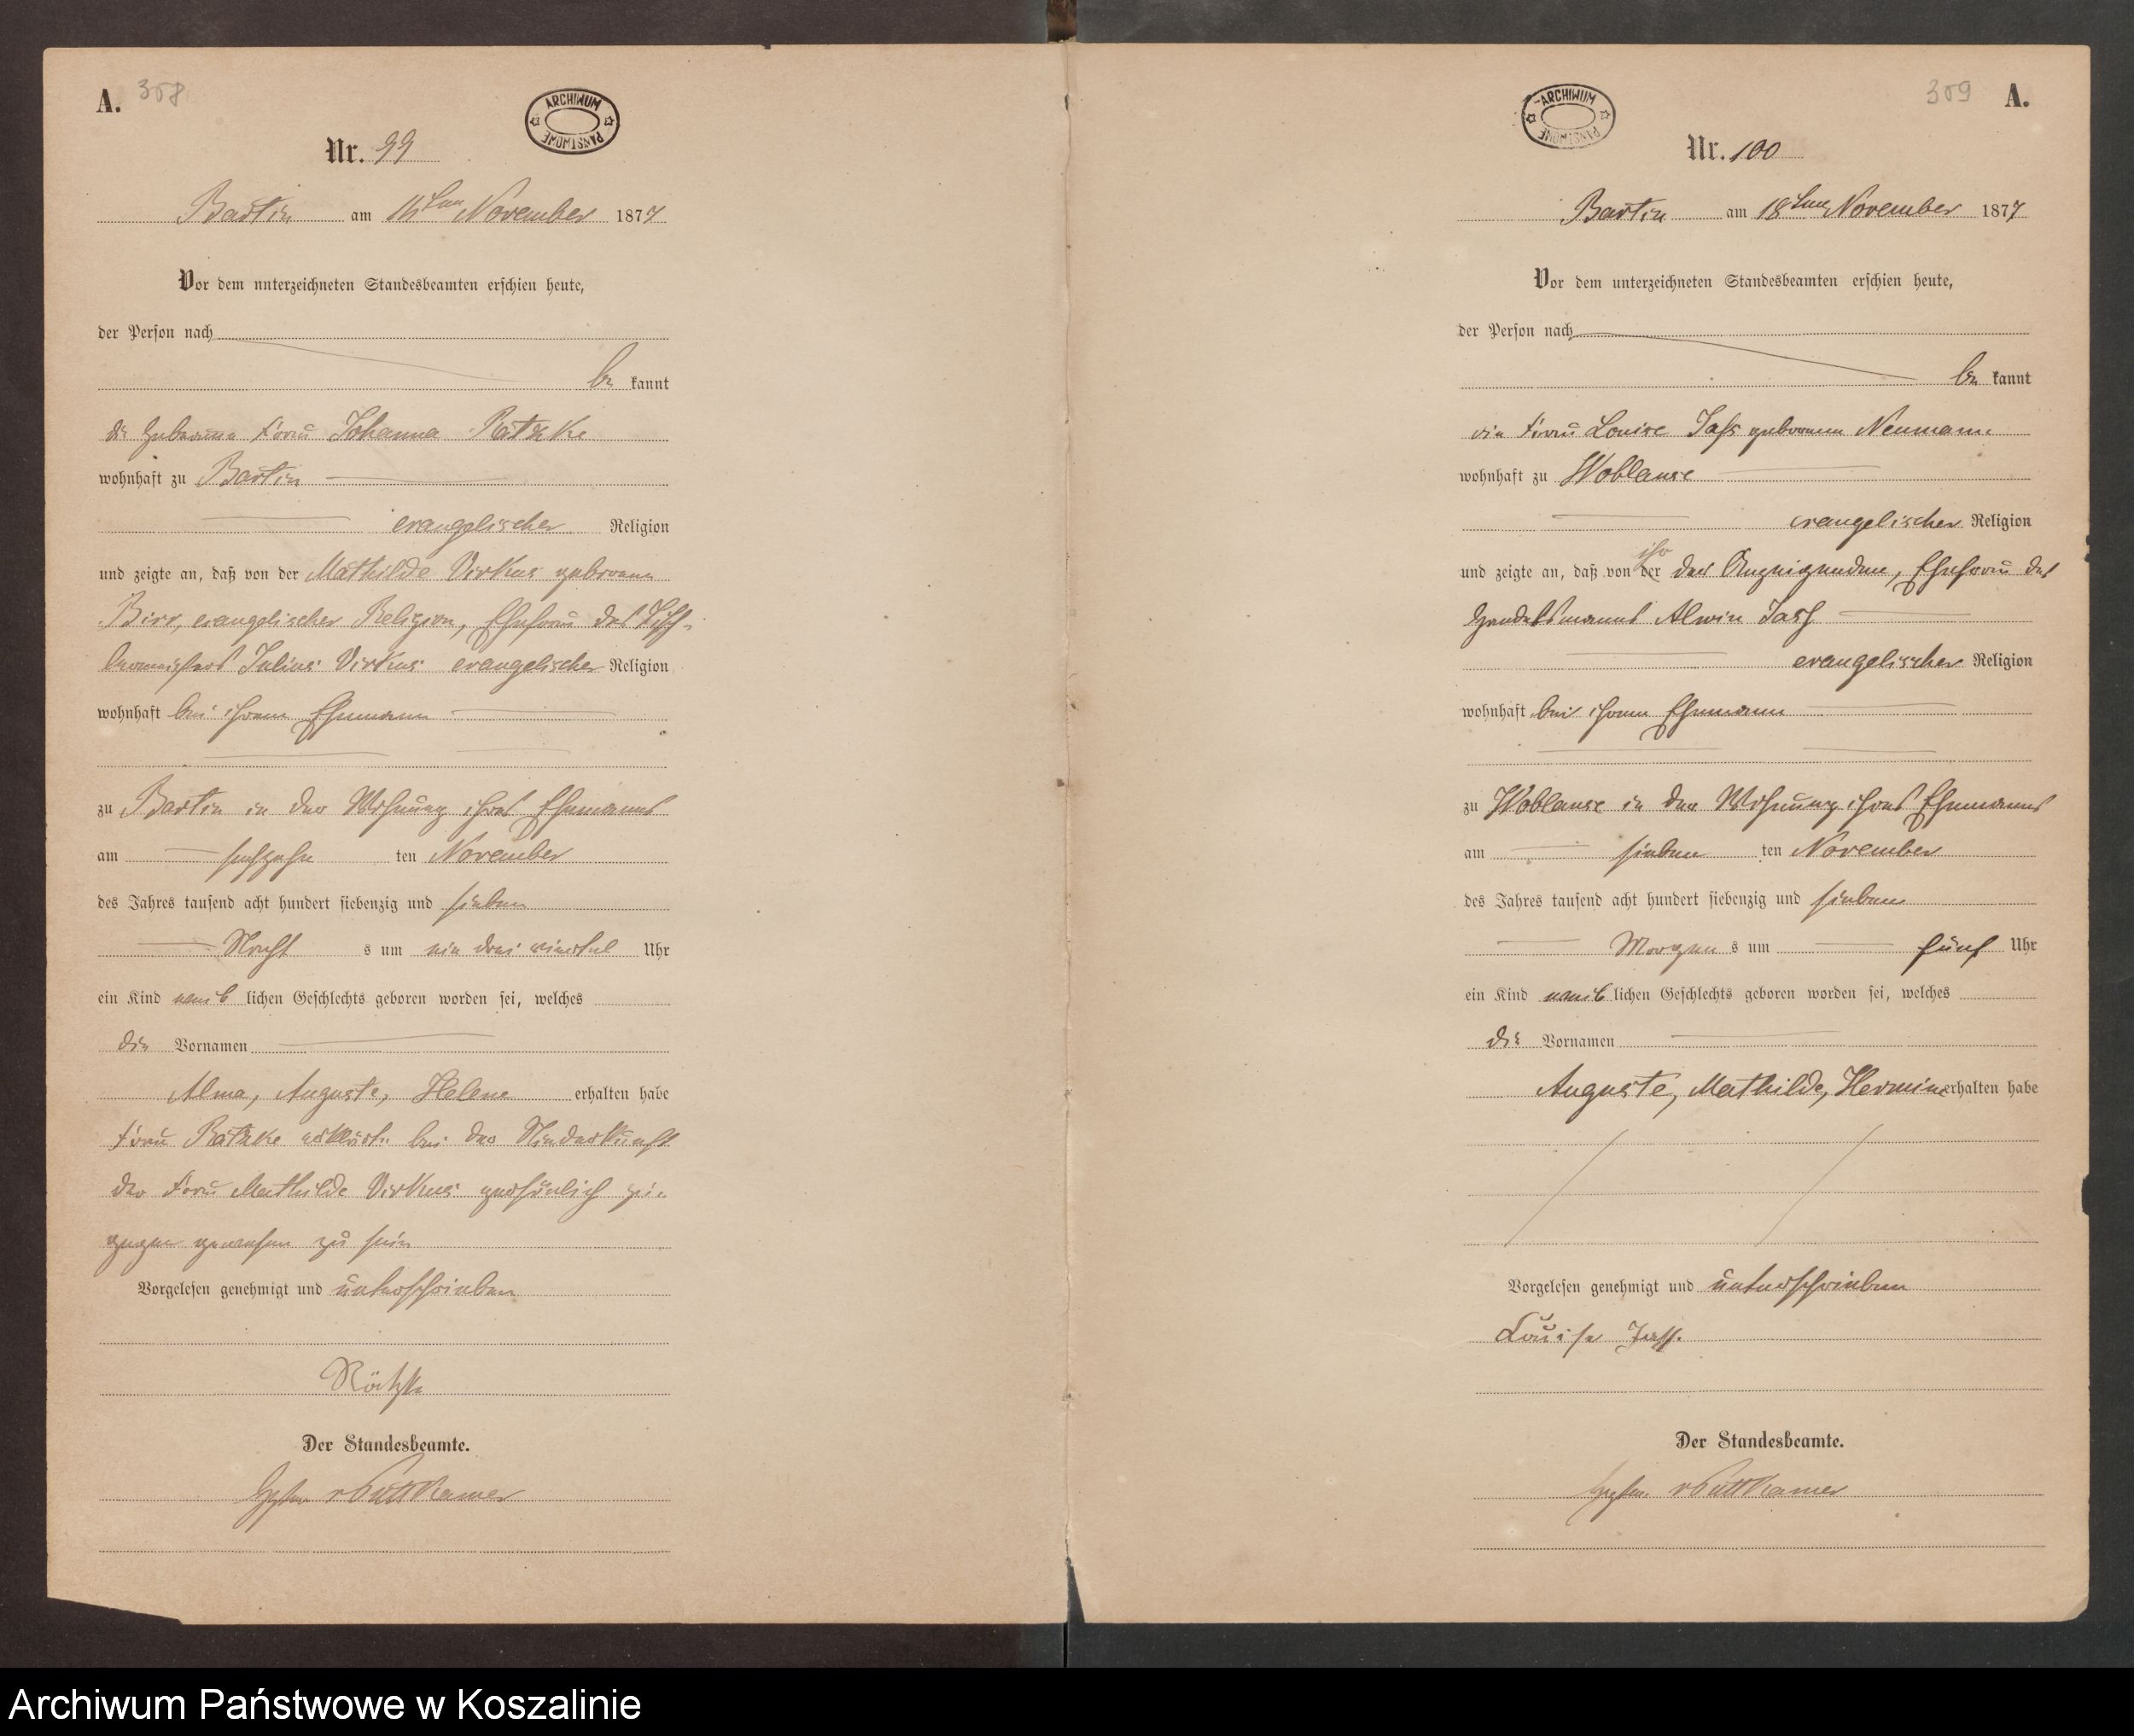 A. 358
ARCHIWUM PAŃSTWOWE
Nr. 99
Bartin am 16ten November 1877
Vor dem unterzeichneten Standesbeamten erschien heute,
der Person nach
be kannt
die Hebamme Frau Johanna Rätzke
wohnhaft zu Bartin
evangelischer Religion
und zeigte an, daß von der Mathilde Virkus geborene
Birr, evangelischer Religion, Ehefrau des Tisch-
lermeisters Julius Virkus evangelischer Religion
wohnhaft bei ihrem Ehemann
zu Bartin in der Wohnung ihres Ehemanns
am sechszehn ten November
des Jahres tausend acht hundert siebenzig und sieben
Nacht s um ein drei viertel Uhr
ein Kind weib lichen Geschlechts geboren worden sei, welches
die Vornamen
Alma, Auguste, Helene erhalten habe
Frau Rätzke erklärte bei der Niederkunft
der Frau Mathilde Virkus persönlich zu-
gegen gewesen zu sein
Vorgelesen genehmigt und unterschrieben
Rätzke
Der Standesbeamte.
v Puttkamer
309 A.
ARCHIWUM PAŃSTWOWE
Nr. 100
Bartin am 18ten November 1877
Vor dem unterzeichneten Standesbeamten erschien heute,
der Person nach
be kannt
die Frau Louise Jass geborene Neumann
wohnhaft zu Woblanse
evangelischer Religion
ihr
und zeigte an, daß von der der Anzeigenden, Ehefrau des
Handelsmanns Alwin Jass
evangelischer Religion
wohnhaft bei ihrem Ehemann
zu Woblanse in der Wohnung ihres Ehemanns
am sieben ten November
des Jahres tausend acht hundert siebenzig und sieben
Morgen s um fünf Uhr
ein Kind weib lichen Geschlechts geboren worden sei, welches
die Vornamen
Auguste, Mathilde, Hermine erhalten habe
Vorgelesen genehmigt und unterschrieben
Louise Jass.
Der Standesbeamte.
v Puttkamer
Archiwum Państwowe w Koszalinie